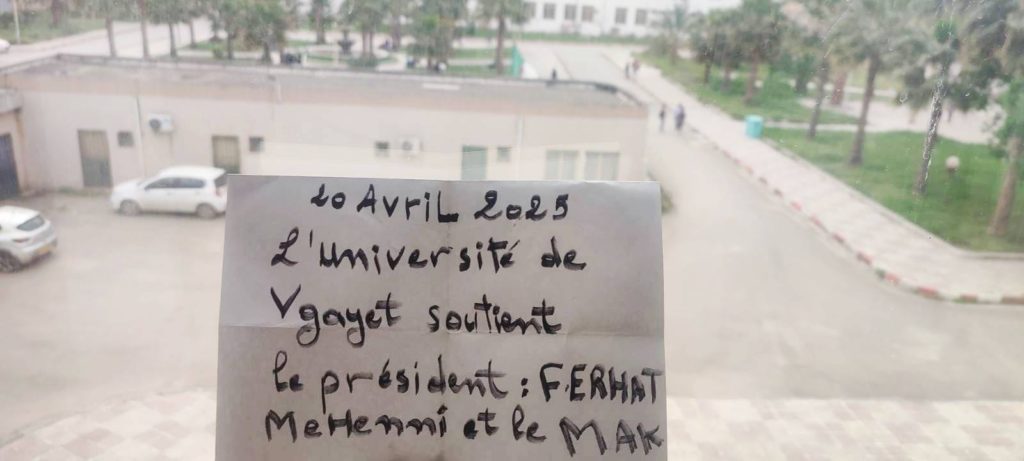 20 AvriL 2025
L'université de
Vgayet soutient
le président : F.ERHAT
MeHenni et le MAK